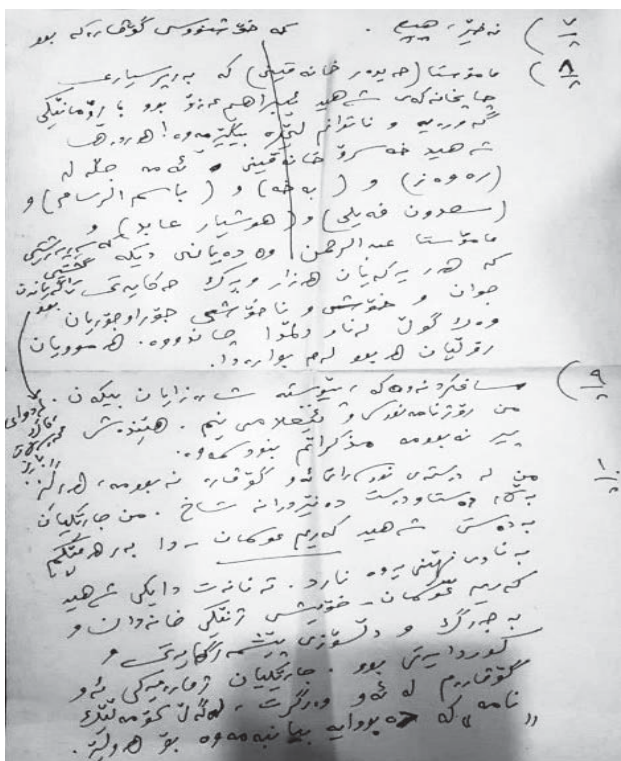 ٧) نەخێر، هیچ. کە خۆشنووسی گۆڤارەکە بوو
٨) مامۆستا (حەیدەر خانەقینی) کە بەرپرسیاری
چاپخانەکەی شەهید ئیبراهیم عەزۆ بوو با ڕۆمانێکی
گەورەیە و ناتوانم لێرە بیگێڕمەوە! هەروەها
شەهید خەسرۆ خانەقینی و ئەمە جگە لە
(ڕەوەز) و (بەفە) و (باسم الرسام) و
(سعدون فەیلی) و (هوشیار عابد) و
مامۆستا عبدالرحمن وە دەیانی دیکە
کە هەر یەکەیان هەزار و یەک حەکایەتی
جوان و خۆشی و ناخۆشی جۆراوجۆریان
وەک گوڵ لەناو دڵمدا چاندووە. هەموویان
ڕۆڵیان هەبوو لەم بوارەدا.
٩) ساغکردنەوەکە، پێویستە شارەزایان بیکەن.
من ڕۆژنامەنووس و ئیعلامی نیم. هێندەش
پیر نەبوومە مذکراتم بنووسمەوە.
١٠) من لە دەستەی نووسەرانی ئەو گۆڤارە نەبوومە، هەرگیز
دەستاودەست دەنێردرانە شاخ. من جارێکیان
بەدەستی شەهید کەریم عوکمان ـ دا بەرهەمێکم
بە ناوی نهێنییەوە نارد. تەنانەت دایکی شەهید
کەریم عوکمان ـ خۆیشی ژنێکی خانەدان و
بە جەرگ و دڵسۆزی پێشمەرگایەتی و
کوردایەتی بوو. جارێکیان ژمارەیەکی ئەو
گۆڤارەم لەو وەرگرت، لەگەڵ کۆمەڵێک
"نامە" کە دەبووایە بیانبەمەوە بۆ هەولێر.